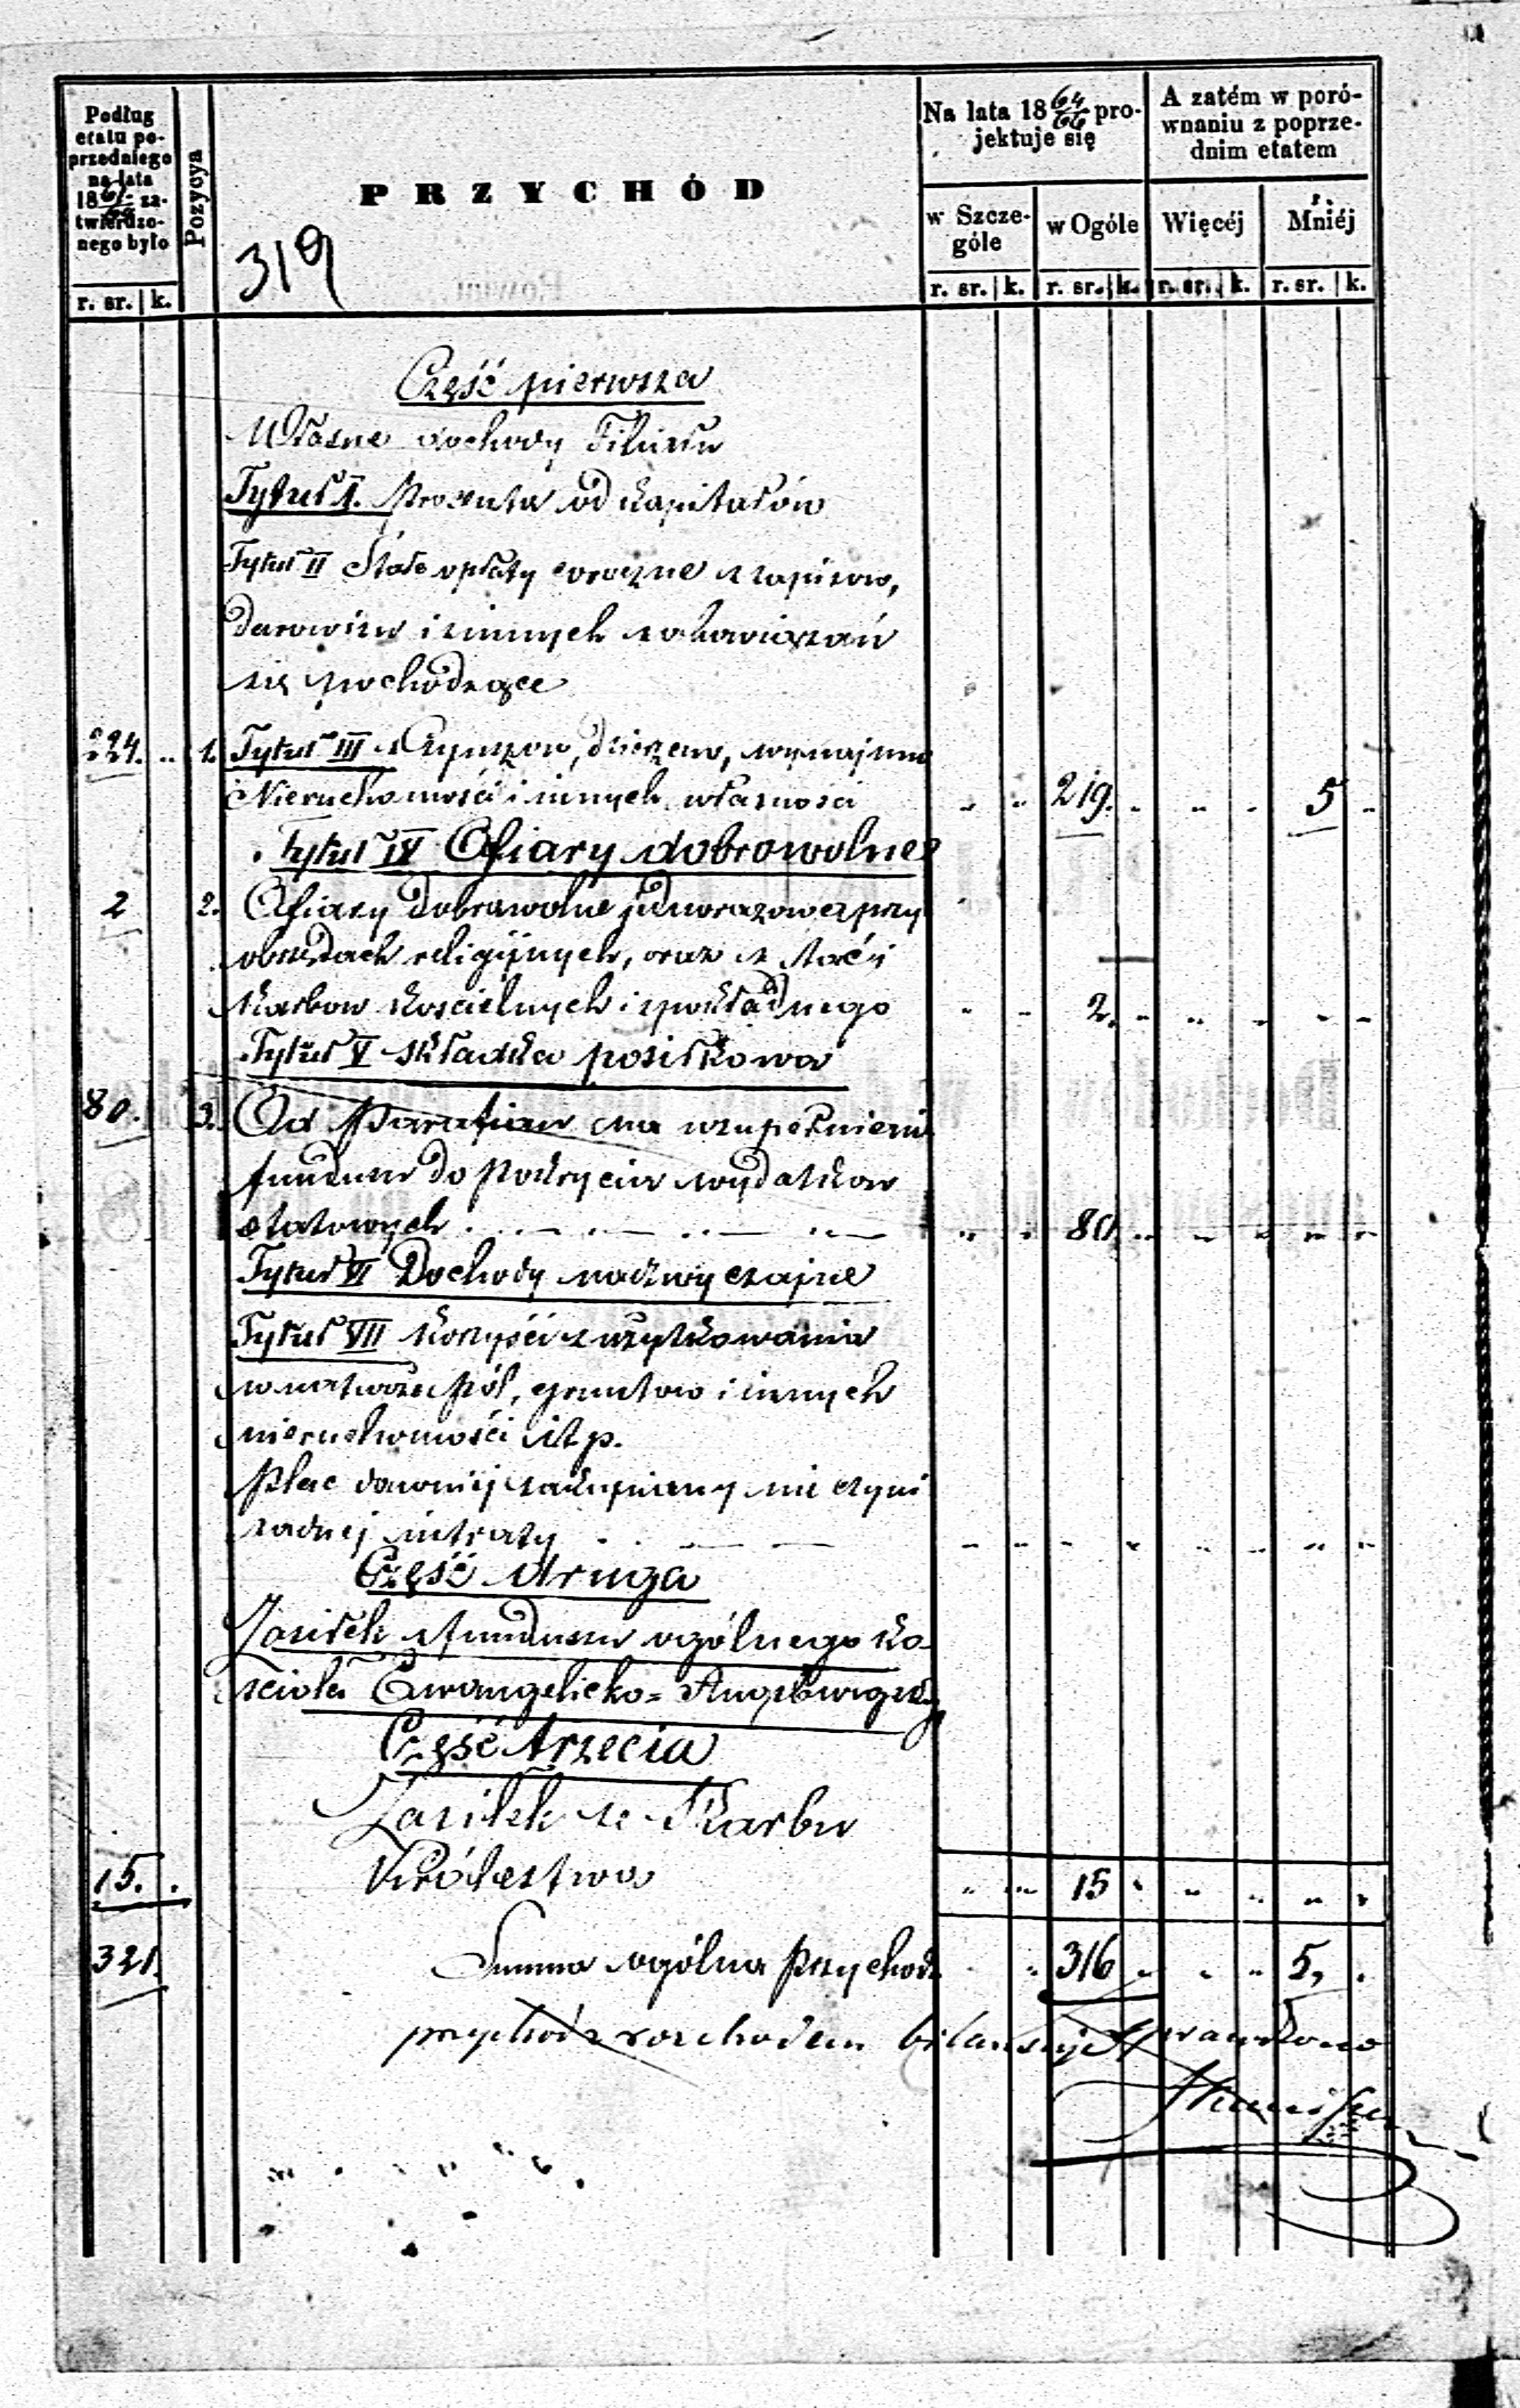 Podług
etatu po-
przedniego
na lata
1861/63 za-
twierdzo-
nego było
Pozycya
PRZYCHÓD
Na lata 1864/66 pro-
jektuje się
A zatém w poró-
wnaniu z poprze-
dnim etatem
w Szcze-
góle
w Ogóle
Więcéj
Mniéj
319
r. sr. k. r. sr. k. r. sr. k. r. sr. k. r. sr. k.
Część pierwsza
Własne dochody Filiału
Tytuł I. Procenta od kapitałów
Tytuł II Stałe opłaty coroczne z zapisow,
darowizn i innych zobowiązań
się pochodzące
224. .. 1. Tytuł III z Czynszow, dzierzaw, wynajmu
Nieruchomości i innych własności .. .. 219. .. .. .. 5 ..
Tytuł IV Ofiary dobrowolne
2 2. Ofiary dobrowolne jednorazowe przy
obrzędach religijnych, oraz z
Karbow Koscielnych i .. .. 2. .. .. .. .. ..
Tytuł V składka posiłkowa
80. 3. Od Parafian na uzupełnienie
funduszu do pokrycia wydatkow
etatowych .. .. 80 .. .. .. .. ..
Tytuł VI Dochody nadzwyczajne
Tytuł VII Korzyści z użytkowania
w naturze pól, gruntow i innych
nieruchomości itp.
Plac dawniej zakupiony nie czyni
zadnej intraty .. .. .. .. .. .. .. ..
Część druga
Zasiłek z funduszu ogólnego Ko-
scioła Ewangelicko-Augsburgsk.
Część trzecia
Zasiłek ze Skarbu
15. . Królestwa .. .. 15 .. .. .. .. ..
321. Summa ogólna Przychodu .. 316 .. .. .. 5, .
przychód z rozchodem bilansuje Sprawdzono